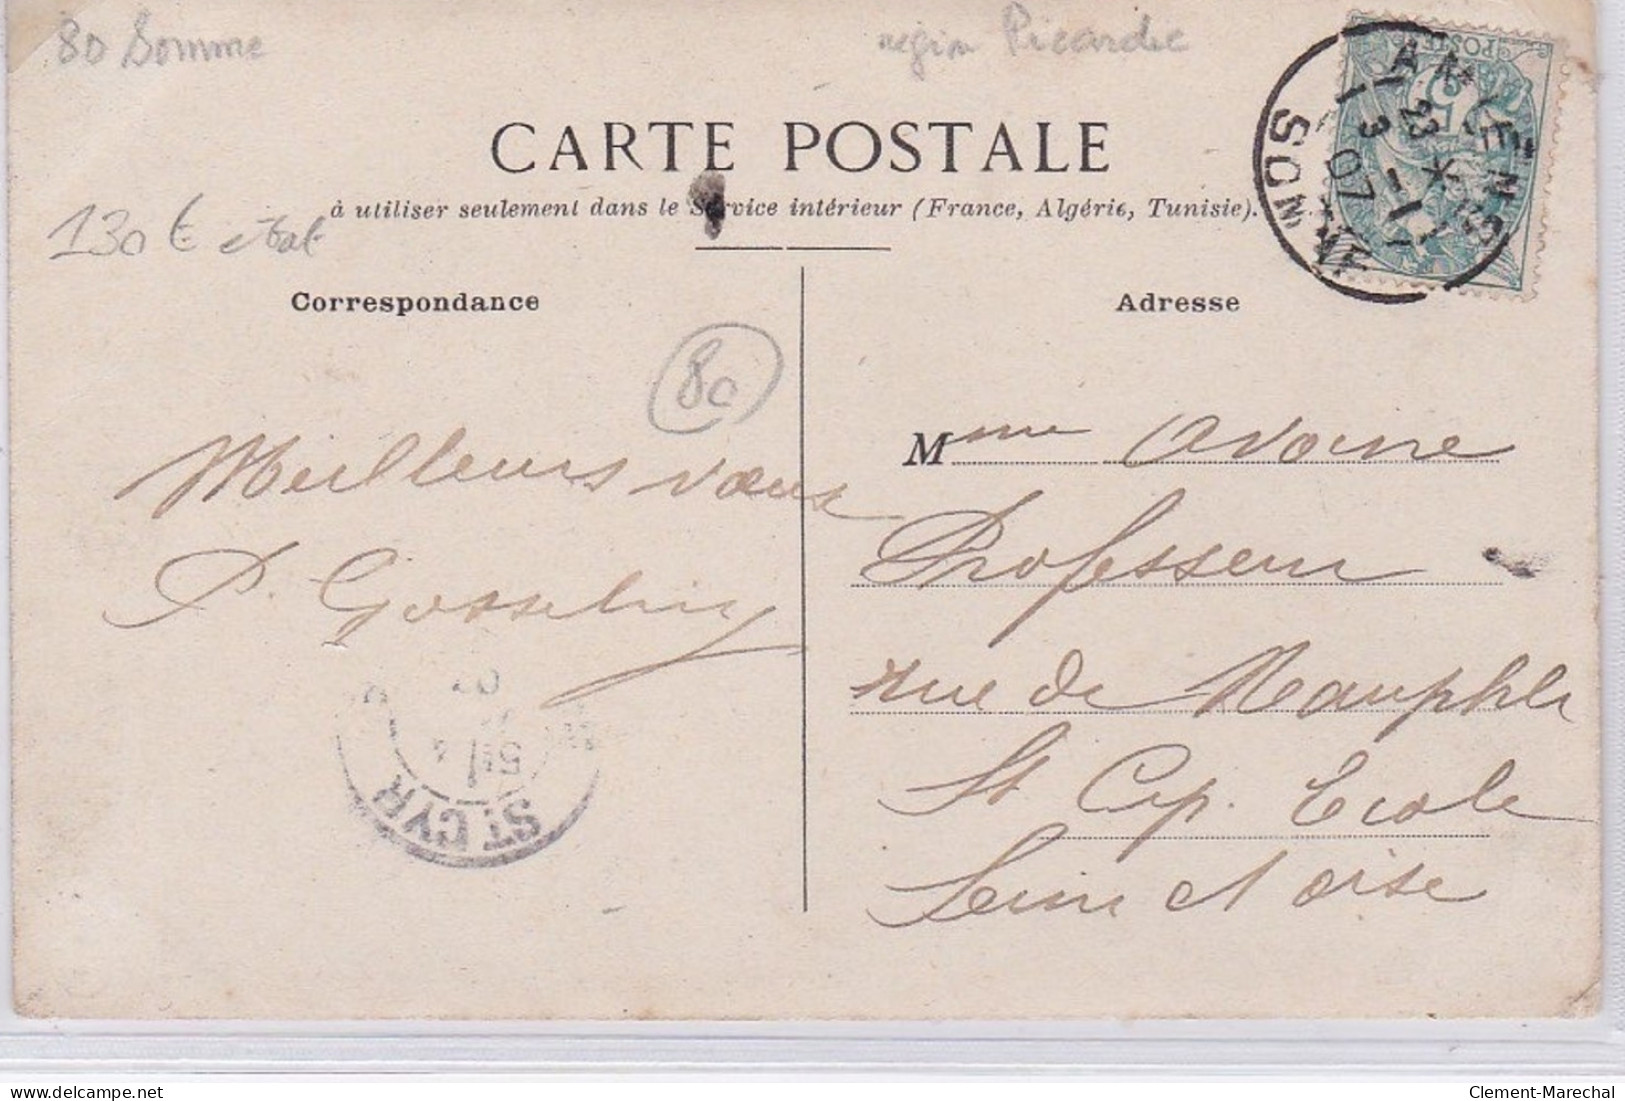 80 Somme
région Picardie
CARTE POSTALE
à utiliser seulement dans le Service intérieur (France, Algérie, Tunisie).
130 € état
AMIENS
23
3 - 1
07
SOMME
POSTE
5
Correspondance
80
Meilleurs vœux
P. Gosselin
ST CYR
07
Adresse
Mme Avoine
Professeur
rue de Nauphle
St Cyr. Ecole
Seine et Oise
delcampe.net
Clement-Marechal